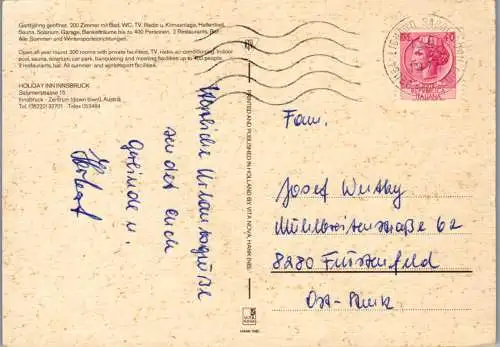 Ganzjährig geöffnet. 200 Zimmer mit Bad, WC, TV, Radio u. Klimaanlage, Hallenbad,
Sauna, Solarium, Garage, Banketträume bis zu 400 Personen, 2 Restaurants, Bar.
Alle Sommer- und Wintersporteinrichtungen.
Open all year round. 200 rooms with private facilities, TV, radio, air-conditioning. Indoor
pool, sauna, solarium, car park, banqueting and meeting facilities up to 400 people.
2 restaurants, bar. All summer- and wintersport facilities.
HOLIDAY INN INNSBRUCK
Salurnerstrasse 15
Innsbruck - Zentrum (down town), Austria
Tel. (05222) 33701 - Telex 053484
Herzliche Urlaubsgrüße
sendet euch
Herbert
PRINTED AND PUBLISHED IN HOLLAND BY VITA NOVA, HANK (NB).
VITA NOVA
LIGNANO SABB
REPUBBLICA
ITALIANA
Fam.
Josef
Mühlbreitenstraße 62
8280 Fürstenfeld